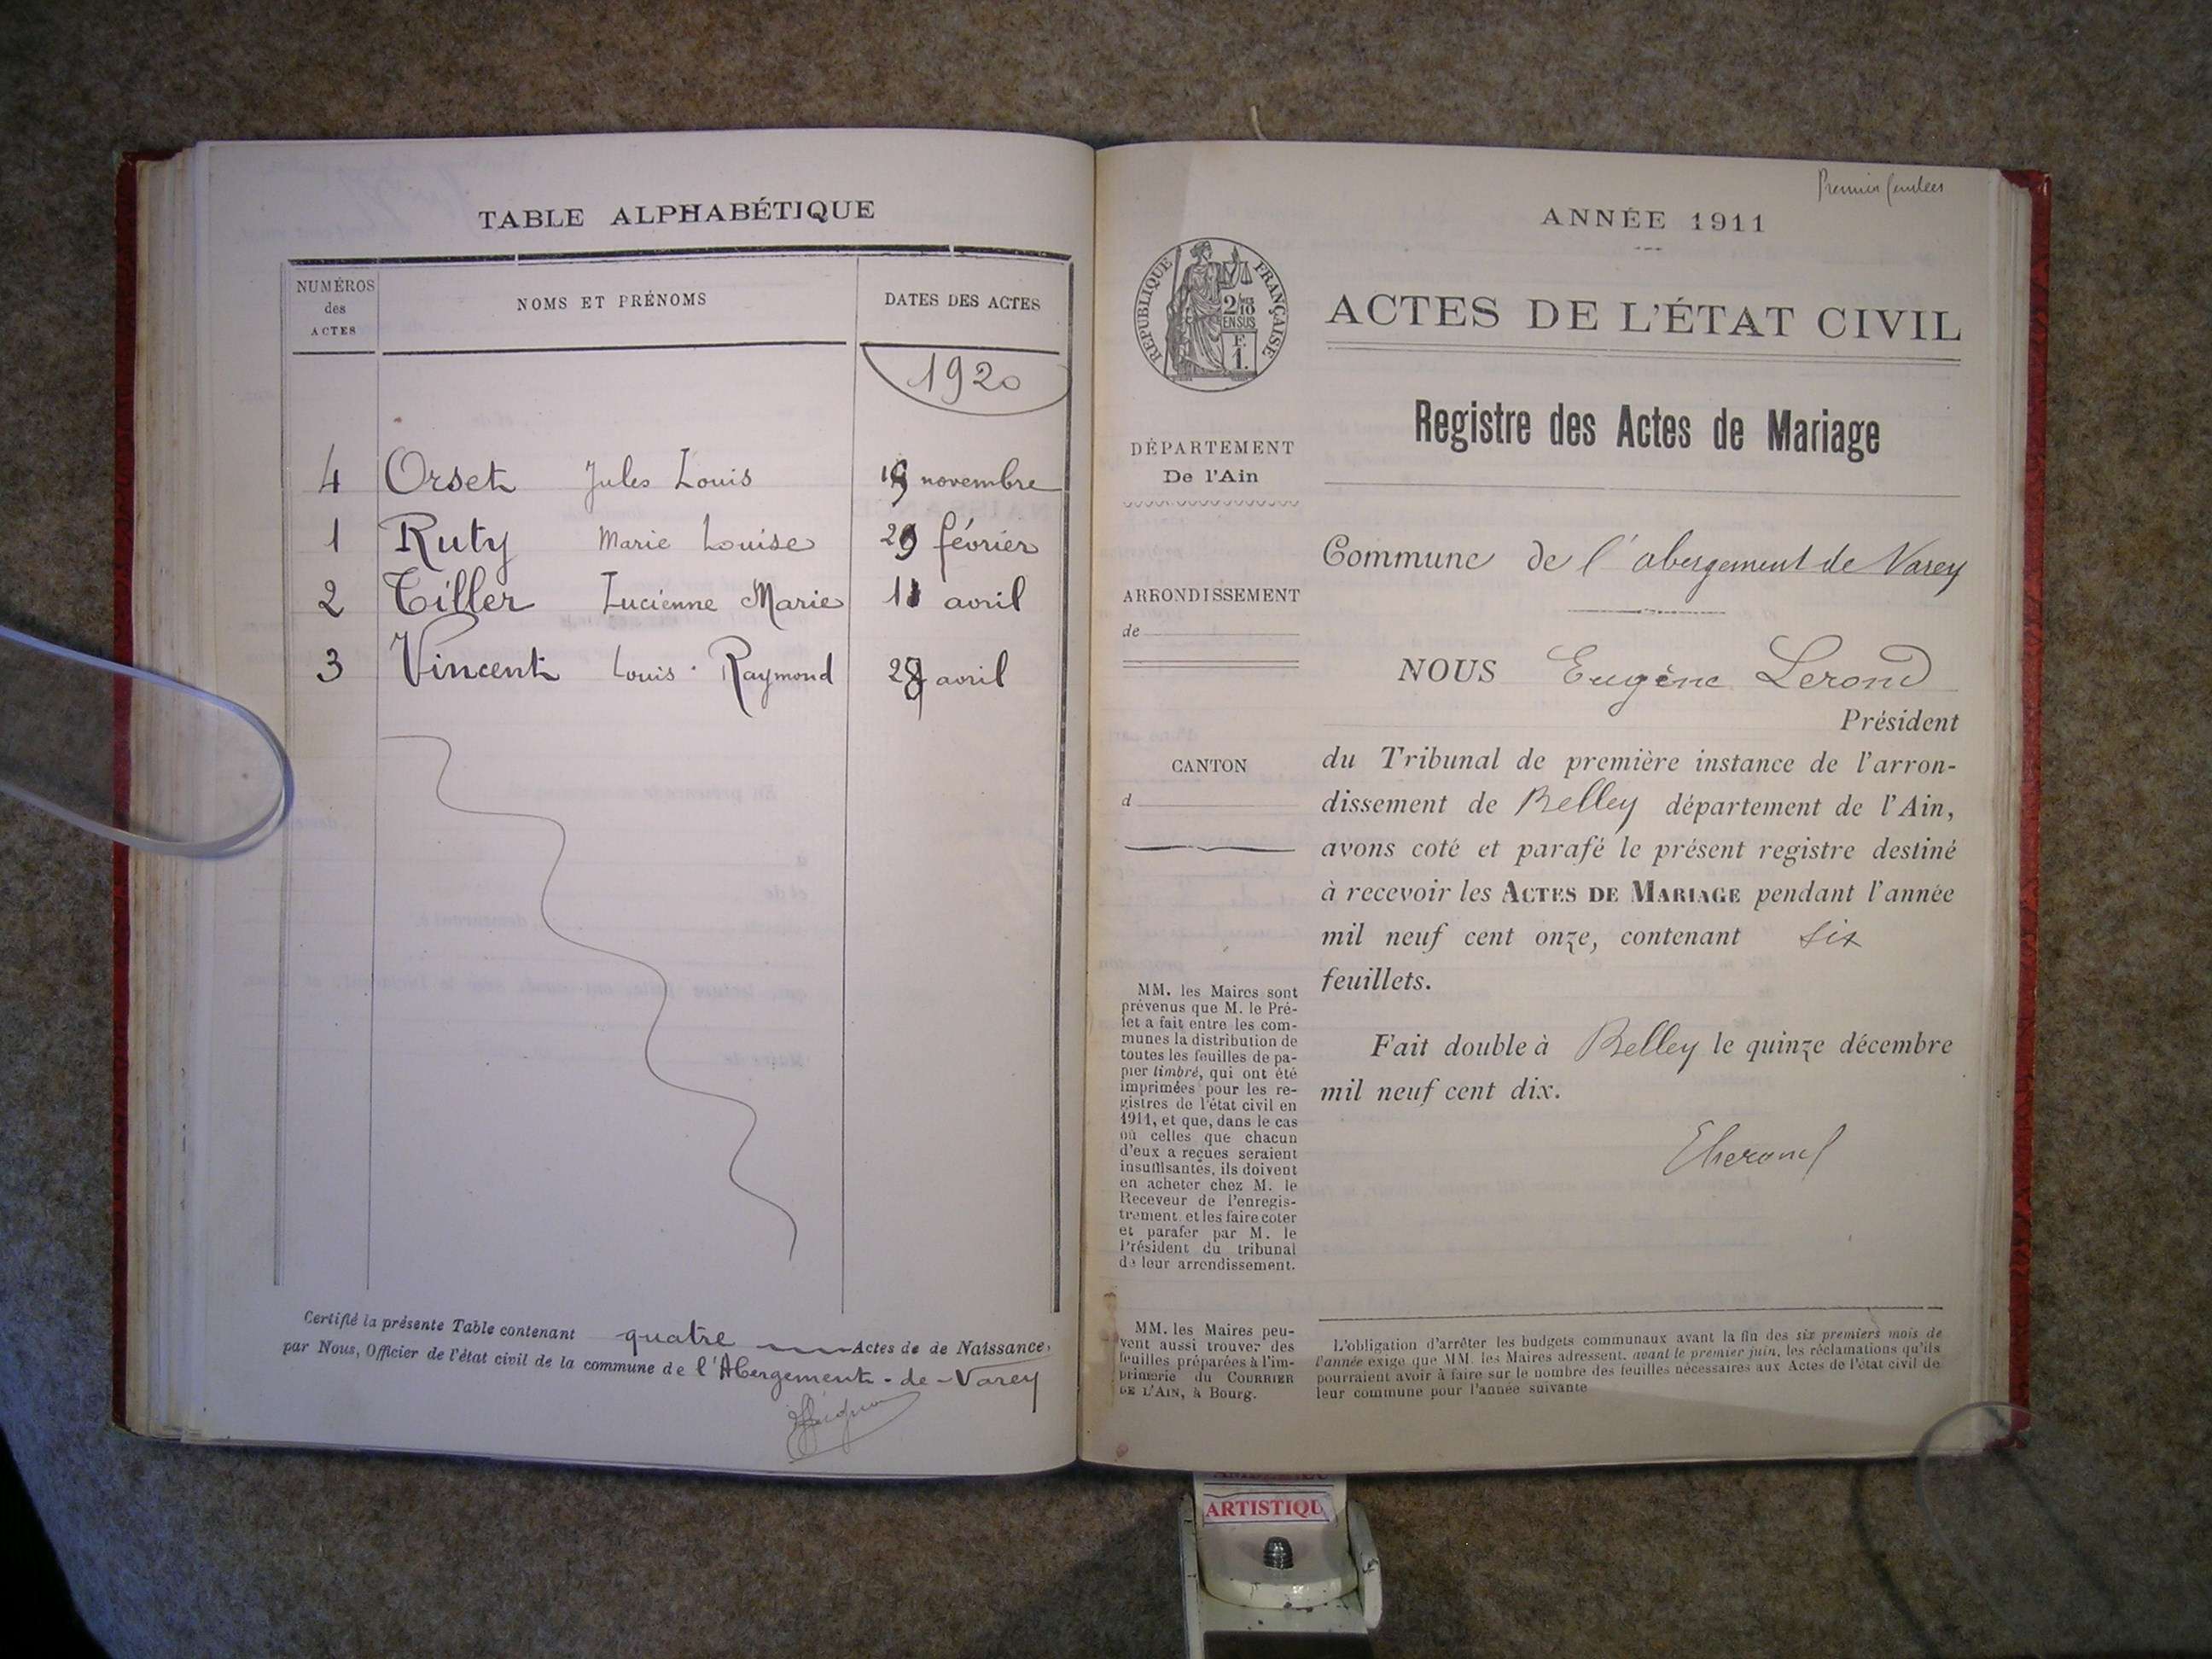 TABLE ALPHABÉTIQUE
NUMÉROS
des
ACTES
NOMS ET PRÉNOMS
DATES DES ACTES
1920
4 Orset Jules Louis 19 novembre
1 Ruty Marie Louise 29 février
2 Tiller Lucienne Marie 11 avril
3 Vincent Louis Raymond 28 avril
Certifié la présente Table contenant quatre Actes de de Naissance,
par Nous, Officier de l'état civil de la commune de l'Abergement-de-Varey
Premier
ANNÉE 1911
RÉPUBLIQUE FRANÇAISE
2/10
EN SUS
F.
1.
ACTES DE L'ÉTAT CIVIL
Registre des Actes de Mariage
DÉPARTEMENT
De l'Ain
ARRONDISSEMENT
de
CANTON
d
MM. les Maires sont
prévenus que M. le Pré-
fet a fait entre les com-
munes la distribution de
toutes les feuilles de pa-
pier timbré, qui ont été
imprimées pour les re-
gistres de l'état civil en
1911, et que, dans le cas
où celles que chacun
d'eux a reçues seraient
insuffisantes, ils doivent
en acheter chez M. le
Receveur de l'enregis-
trement et les faire coter
et parafer par M. le
Président du tribunal
de leur arrondissement.
MM. les Maires peu-
vent aussi trouver des
feuilles préparées à l'im-
primerie du COURRIER
DE L'AIN, à Bourg.
Commune de l'abergement de Varey
NOUS Eugène Lerond
Président
du Tribunal de première instance de l'arron-
dissement de Belley département de l'Ain,
avons coté et parafé le présent registre destiné
à recevoir les ACTES DE MARIAGE pendant l'année
mil neuf cent onze, contenant six
feuillets.
Fait double à Belley le quinze décembre
mil neuf cent dix.
ELerond
L'obligation d'arrêter les budgets communaux avant la fin des six premiers mois de
l'année exige que MM. les Maires adressent, avant le premier juin, les réclamations qu'ils
pourraient avoir à faire sur le nombre des feuilles nécessaires aux Actes de l'état civil de
leur commune pour l'année suivante
ARTISTIQU